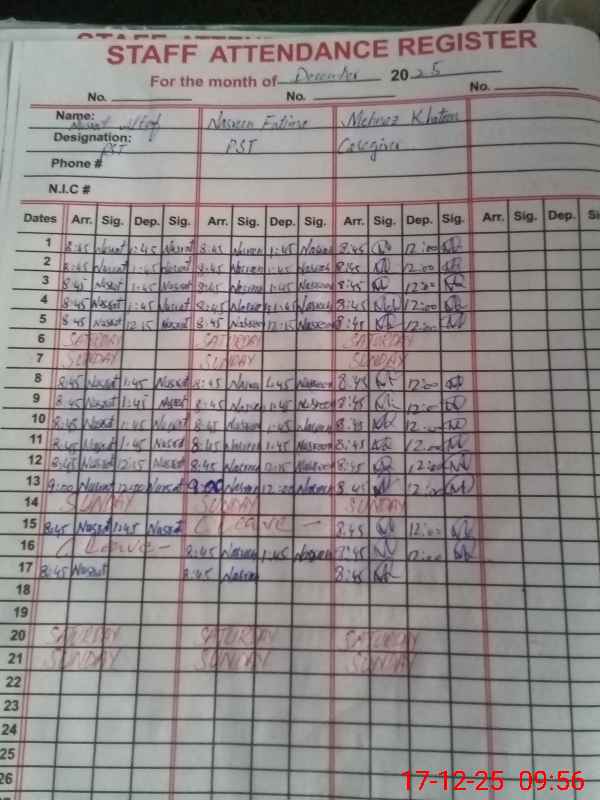 STAFF ATTENDANCE REGISTER
For the month of December 2025
No. No. No.
Name: Nusrat Altaf Nasreen Fatima Mehnaz Khatoon
Designation: PST PST Caregiver
Phone #
N.I.C #
Dates Arr. Sig. Dep. Sig. Arr. Sig. Dep. Sig. Arr. Sig. Dep. Sig. Arr. Sig. Dep.
1 8:45 Nusrat 1:45 Nusrat 8:45 Nasreen 1:45 Nasreen 8:45 12:00
2 8:45 Nusrat 1:45 Nusrat 8:45 Nasreen 1:45 Nasreen 8:45 12:00
3 8:45 Nusrat 1:45 Nusrat 8:45 Nasreen 1:45 Nasreen 8:45 12:00
4 8:45 Nusrat 1:45 Nusrat 8:45 Nasreen 1:45 Nasreen 8:45 12:00
5 8:45 Nusrat 12:15 Nusrat 8:45 Nasreen 12:15 Nasreen 8:45 12:00
6 SATURDAY SATURDAY SATURDAY
7 SUNDAY SUNDAY SUNDAY
8 8:45 Nusrat 1:45 Nusrat 8:45 Nasreen 1:45 Nasreen 8:45 12:00
9 8:45 Nusrat 1:45 Nusrat 8:45 Nasreen 1:45 Nasreen 8:45 12:00
10 8:45 Nusrat 1:45 Nusrat 8:45 Nasreen 1:45 Nasreen 8:45 12:00
11 8:45 Nusrat 1:45 Nusrat 8:45 Nasreen 1:45 Nasreen 8:45 12:00
12 8:45 Nusrat 12:15 Nusrat 8:45 Nasreen 12:15 Nasreen 8:45 12:00
13 9:00 Nusrat 12:00 Nusrat 9:00 Nasreen 12:00 Nasreen 8:45 12:00
14 SUNDAY SUNDAY SUNDAY
15 8:45 Nusrat 1:45 Nusrat Leave 8:45 12:00
16 Leave 8:45 Nasreen 1:45 Nasreen 8:45 12:00
17 8:45 Nusrat 8:45 Nasreen 8:45
18
19
20 SATURDAY SATURDAY SATURDAY
21 SUNDAY SUNDAY SUNDAY
22
23
24
25
26
17-12-25 09:56